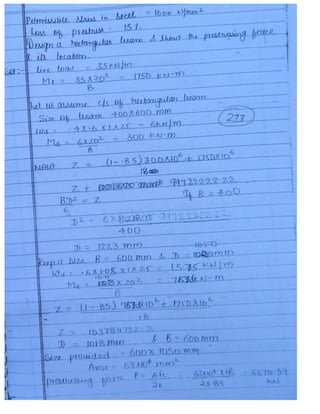 Permissible stress in steel = 1600 N/mm²
Loss of prestress = 15%
Design a rectangular beam & show the prestressing force
& its location.
Sol:- live load = 35 kN/m
ML = 35 × 20² = 1750 kN-m
8
Let us assume c/s of rectangular beam
Size of beam 400 × 600 mm
(273)
Wd = .4 × .6 × 1 × 25 = 6 kN/m
Md = 6 × 20² = 300 kN-m
8
Now Z = (1-.85) 300×10⁶ + 1750×10⁶
18
Z = 99722222.22
BD² = Z If B = 400
6
D² = 6 × 99722222.22
400
D = 1223 mm
Keep a size B = 600 mm & D = 1050 mm
Wd = .6 × 1.05 × 1 × 25 = 15.75 kN/m
Md = 15.75 × 20² = kN-m
8
Z = (1-.85) ×10⁶ + 1750×10⁶
18
Z = 103784722.2
D = 1018 mm & B = 600 mm
Size provided = 600 × 1050 mm
Area = 63×10⁴ mm²
Prestressing force P = Afc = = 6670.59
2× 2×.85 kN